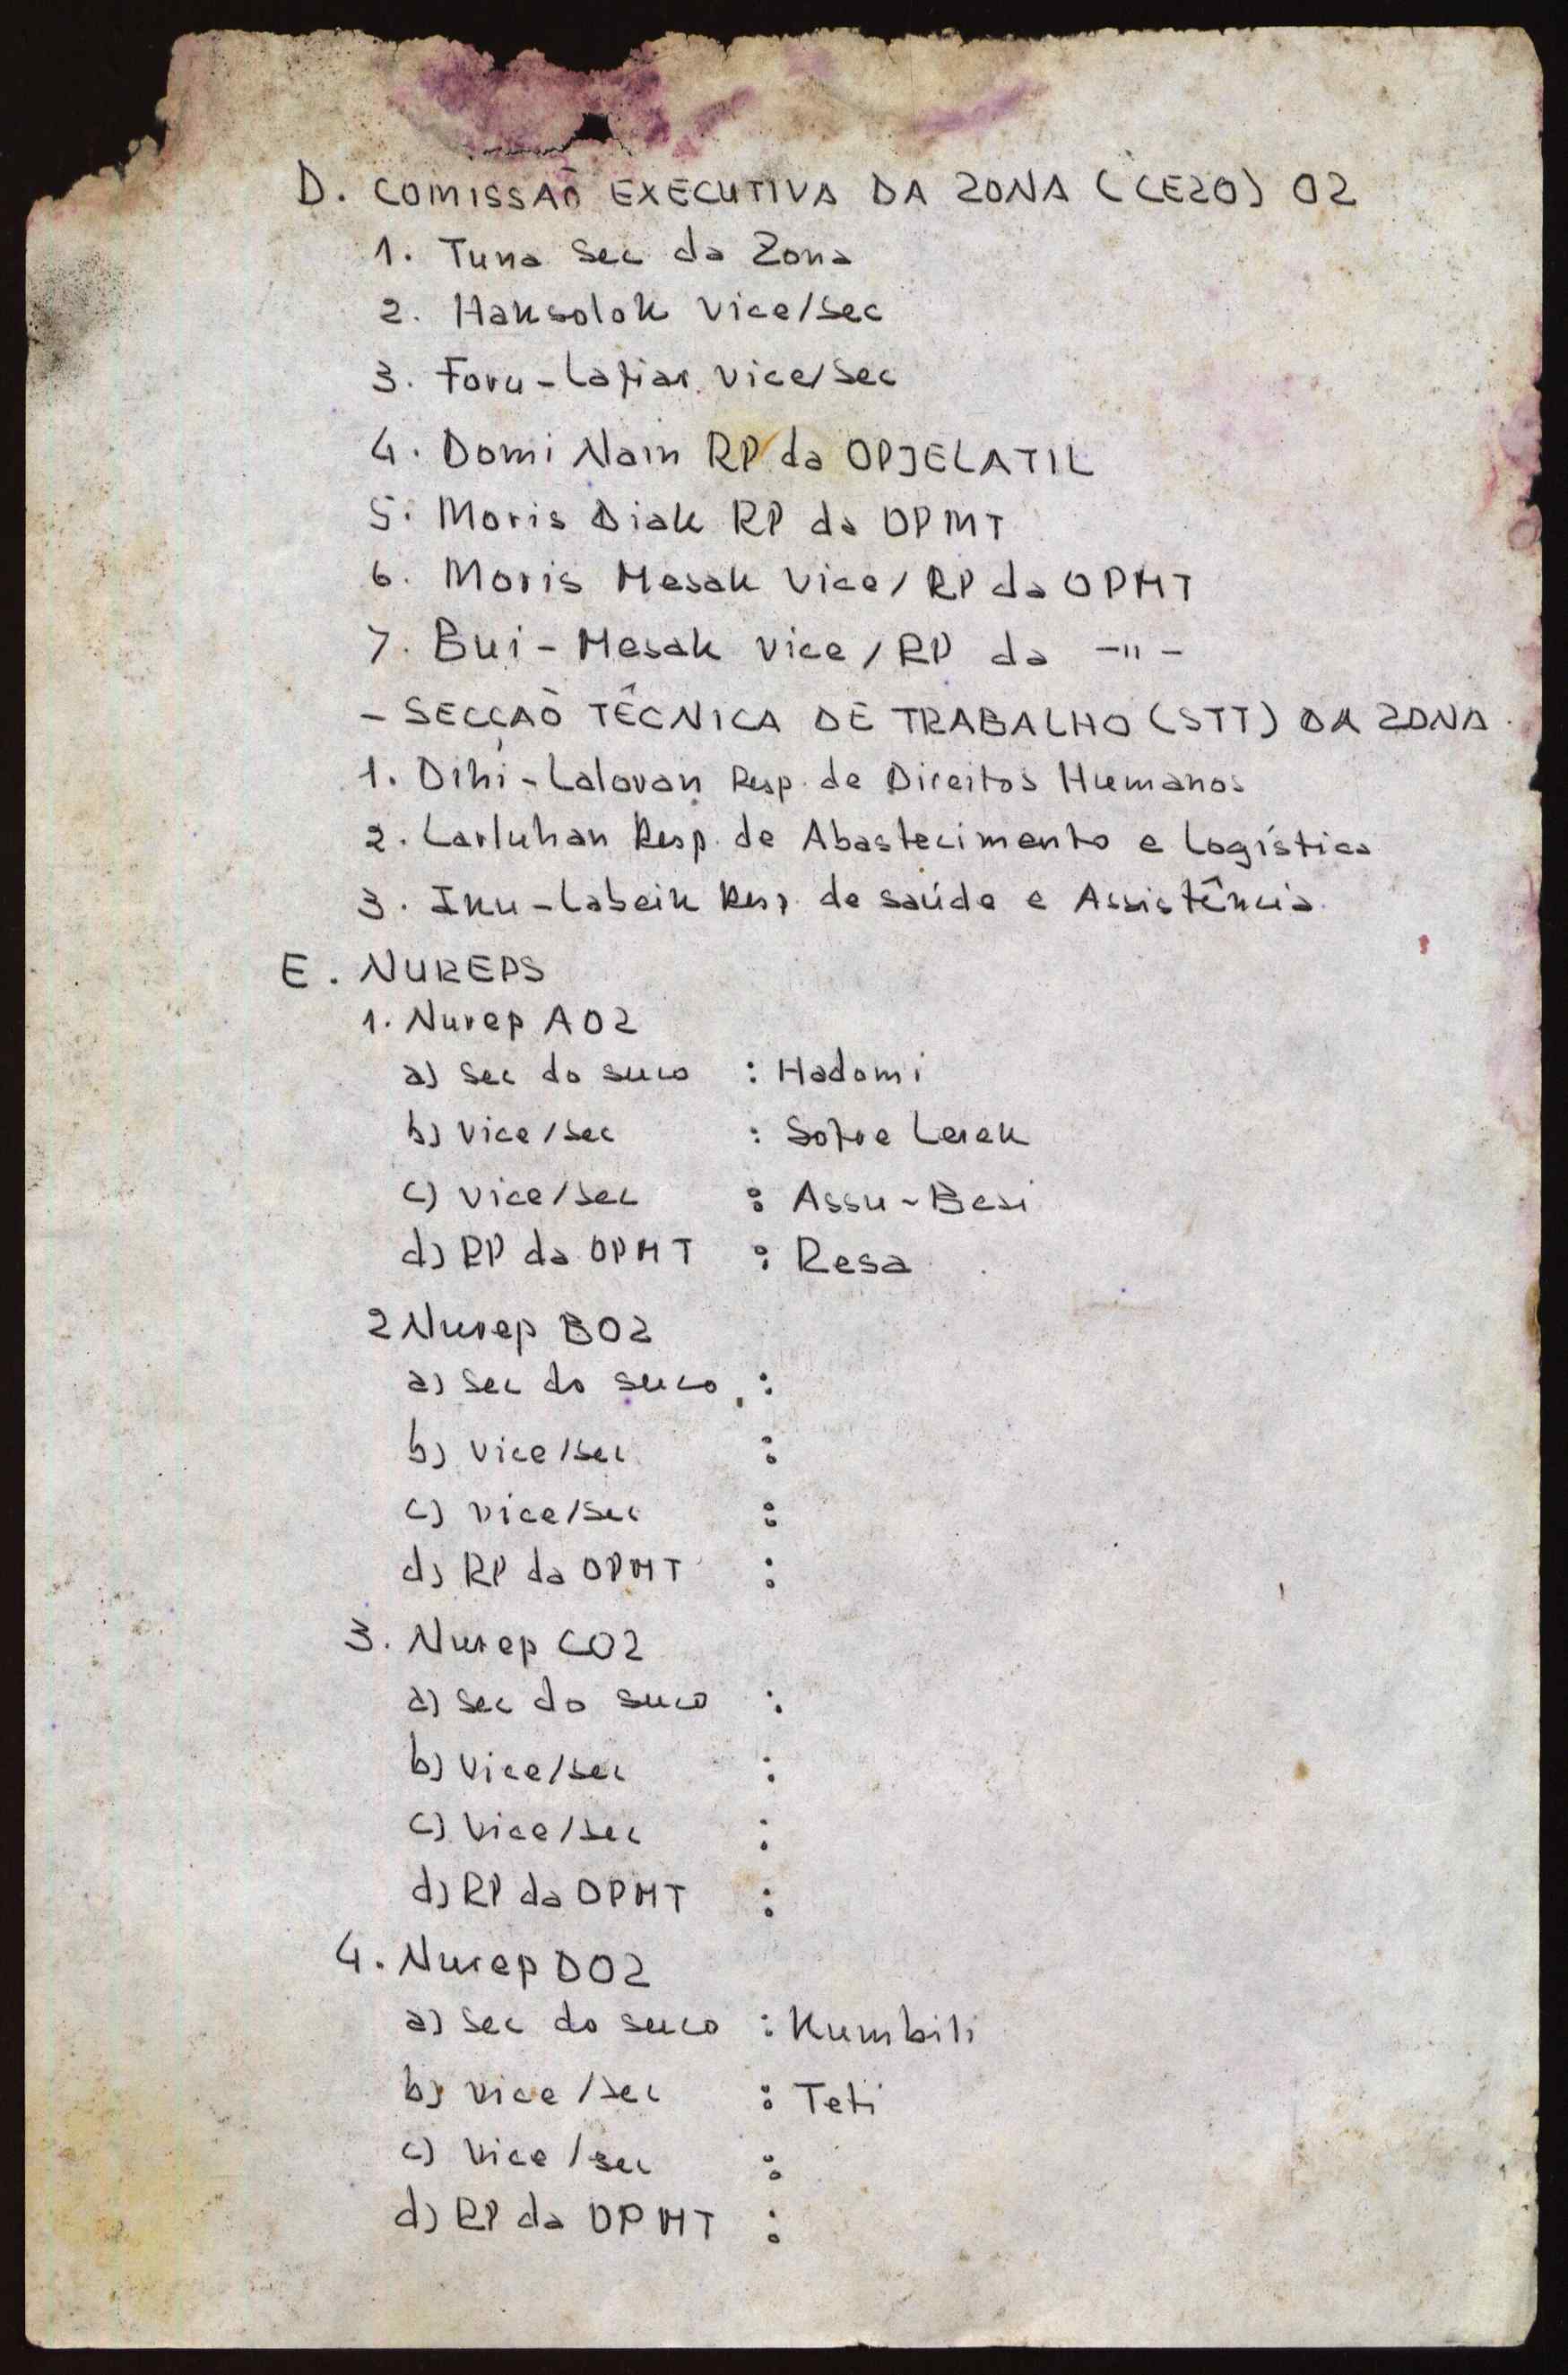 D. COMISSAÕ EXECUTIVA DA ZONA (CEZO) 02
1. Tuna Sec da Zona
2. Haksolok Vice/Sec
3. Foru-Lafiar Vice/Sec
4. Domi Nain RP da OPJELATIL
5. Moris Diak RP da OPMT
6. Moris Mesak Vice/RP da OPMT
7. Bui-Mesak Vice/RP da -"-
- SECÇAÕ TÊCNICA DE TRABALHO (STT) DA ZONA
1. Dihi-Lalovan Resp. de Direitos Humanos
2. Larluhan Resp. de Abastecimento e Logística
3. Iku-Labeik Resp. de saúde e Assistência.
E. NUREPS
1. Nurep A02
a) Sec do suco : Hadomi
b) Vice/sec : Sofre Lerek
c) Vice/sec : Assu-Besi
d) RP da OPMT : Resa
2 Nurep B02
a) Sec do suco :
b) Vice/sec :
c) Vice/sec :
d) RP da OPMT :
3. Nurep C02
a) Sec do suco :
b) Vice/sec :
c) Vice/sec :
d) RP da OPMT :
4. Nurep D02
a) Sec do suco : Kumbili
b) Vice/sec : Teti
c) Vice/sec :
d) RP da OPMT :